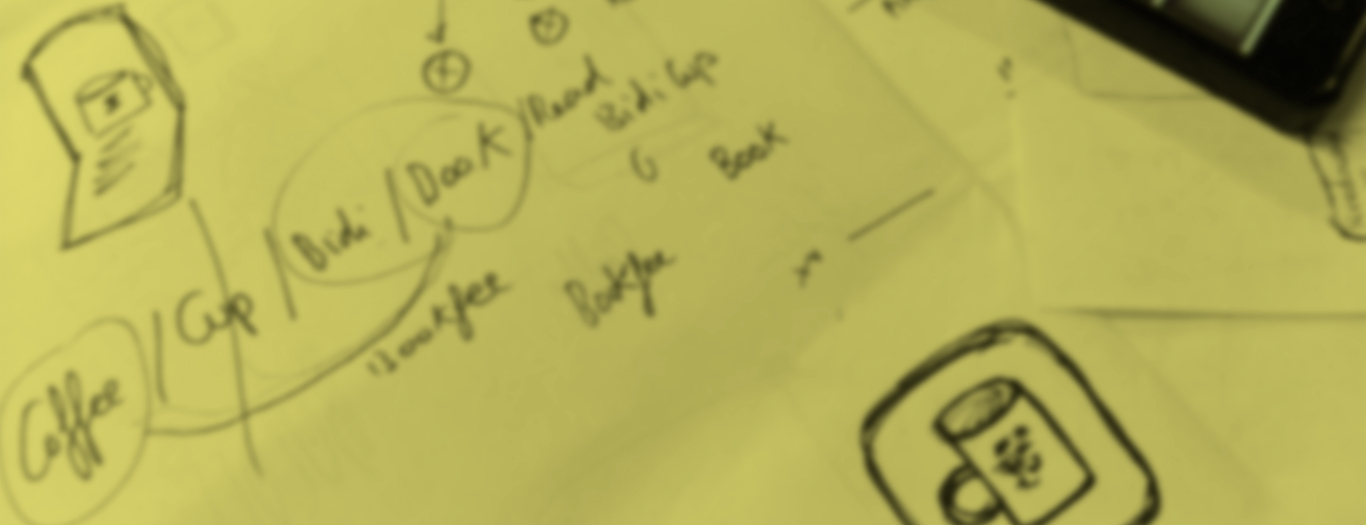 Coffee / Cup / Bidi / Book / Read
Bidi Cup
Book
Bookfee
Bookfee